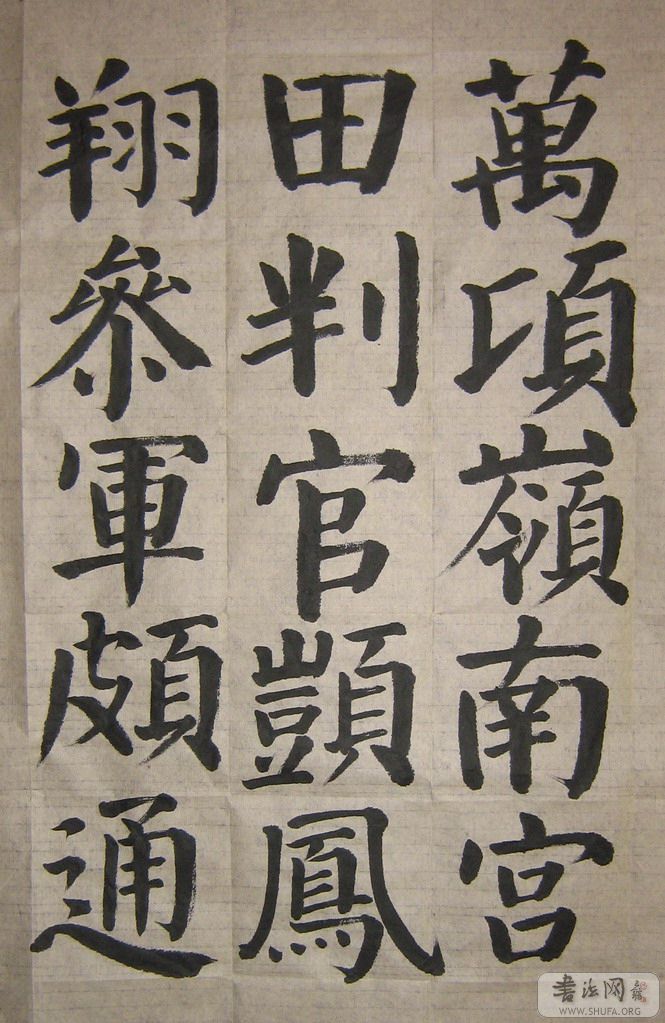 萬項嶺南宮
田判官顗鳳
翔參軍頗通
书法网
WWW.SHUFA.ORG